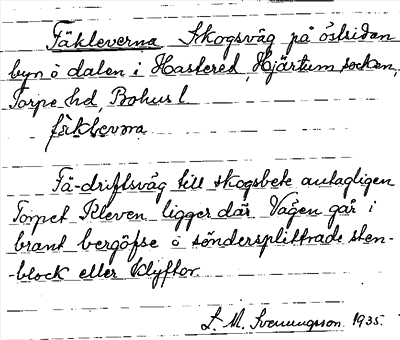 Fäkleverna Skogsväg på östsidan
byn o dalen i Hastered, Hjärtum socken,
Torpe hd, Bohus l.
Fä-driftsväg till skogsbete antagligen
Torpet Kleven ligger där. Vägen går i
brant bergöfse o söndersplittrade sten-
-block eller klyftor.
L. M. Svenungsson 1935.